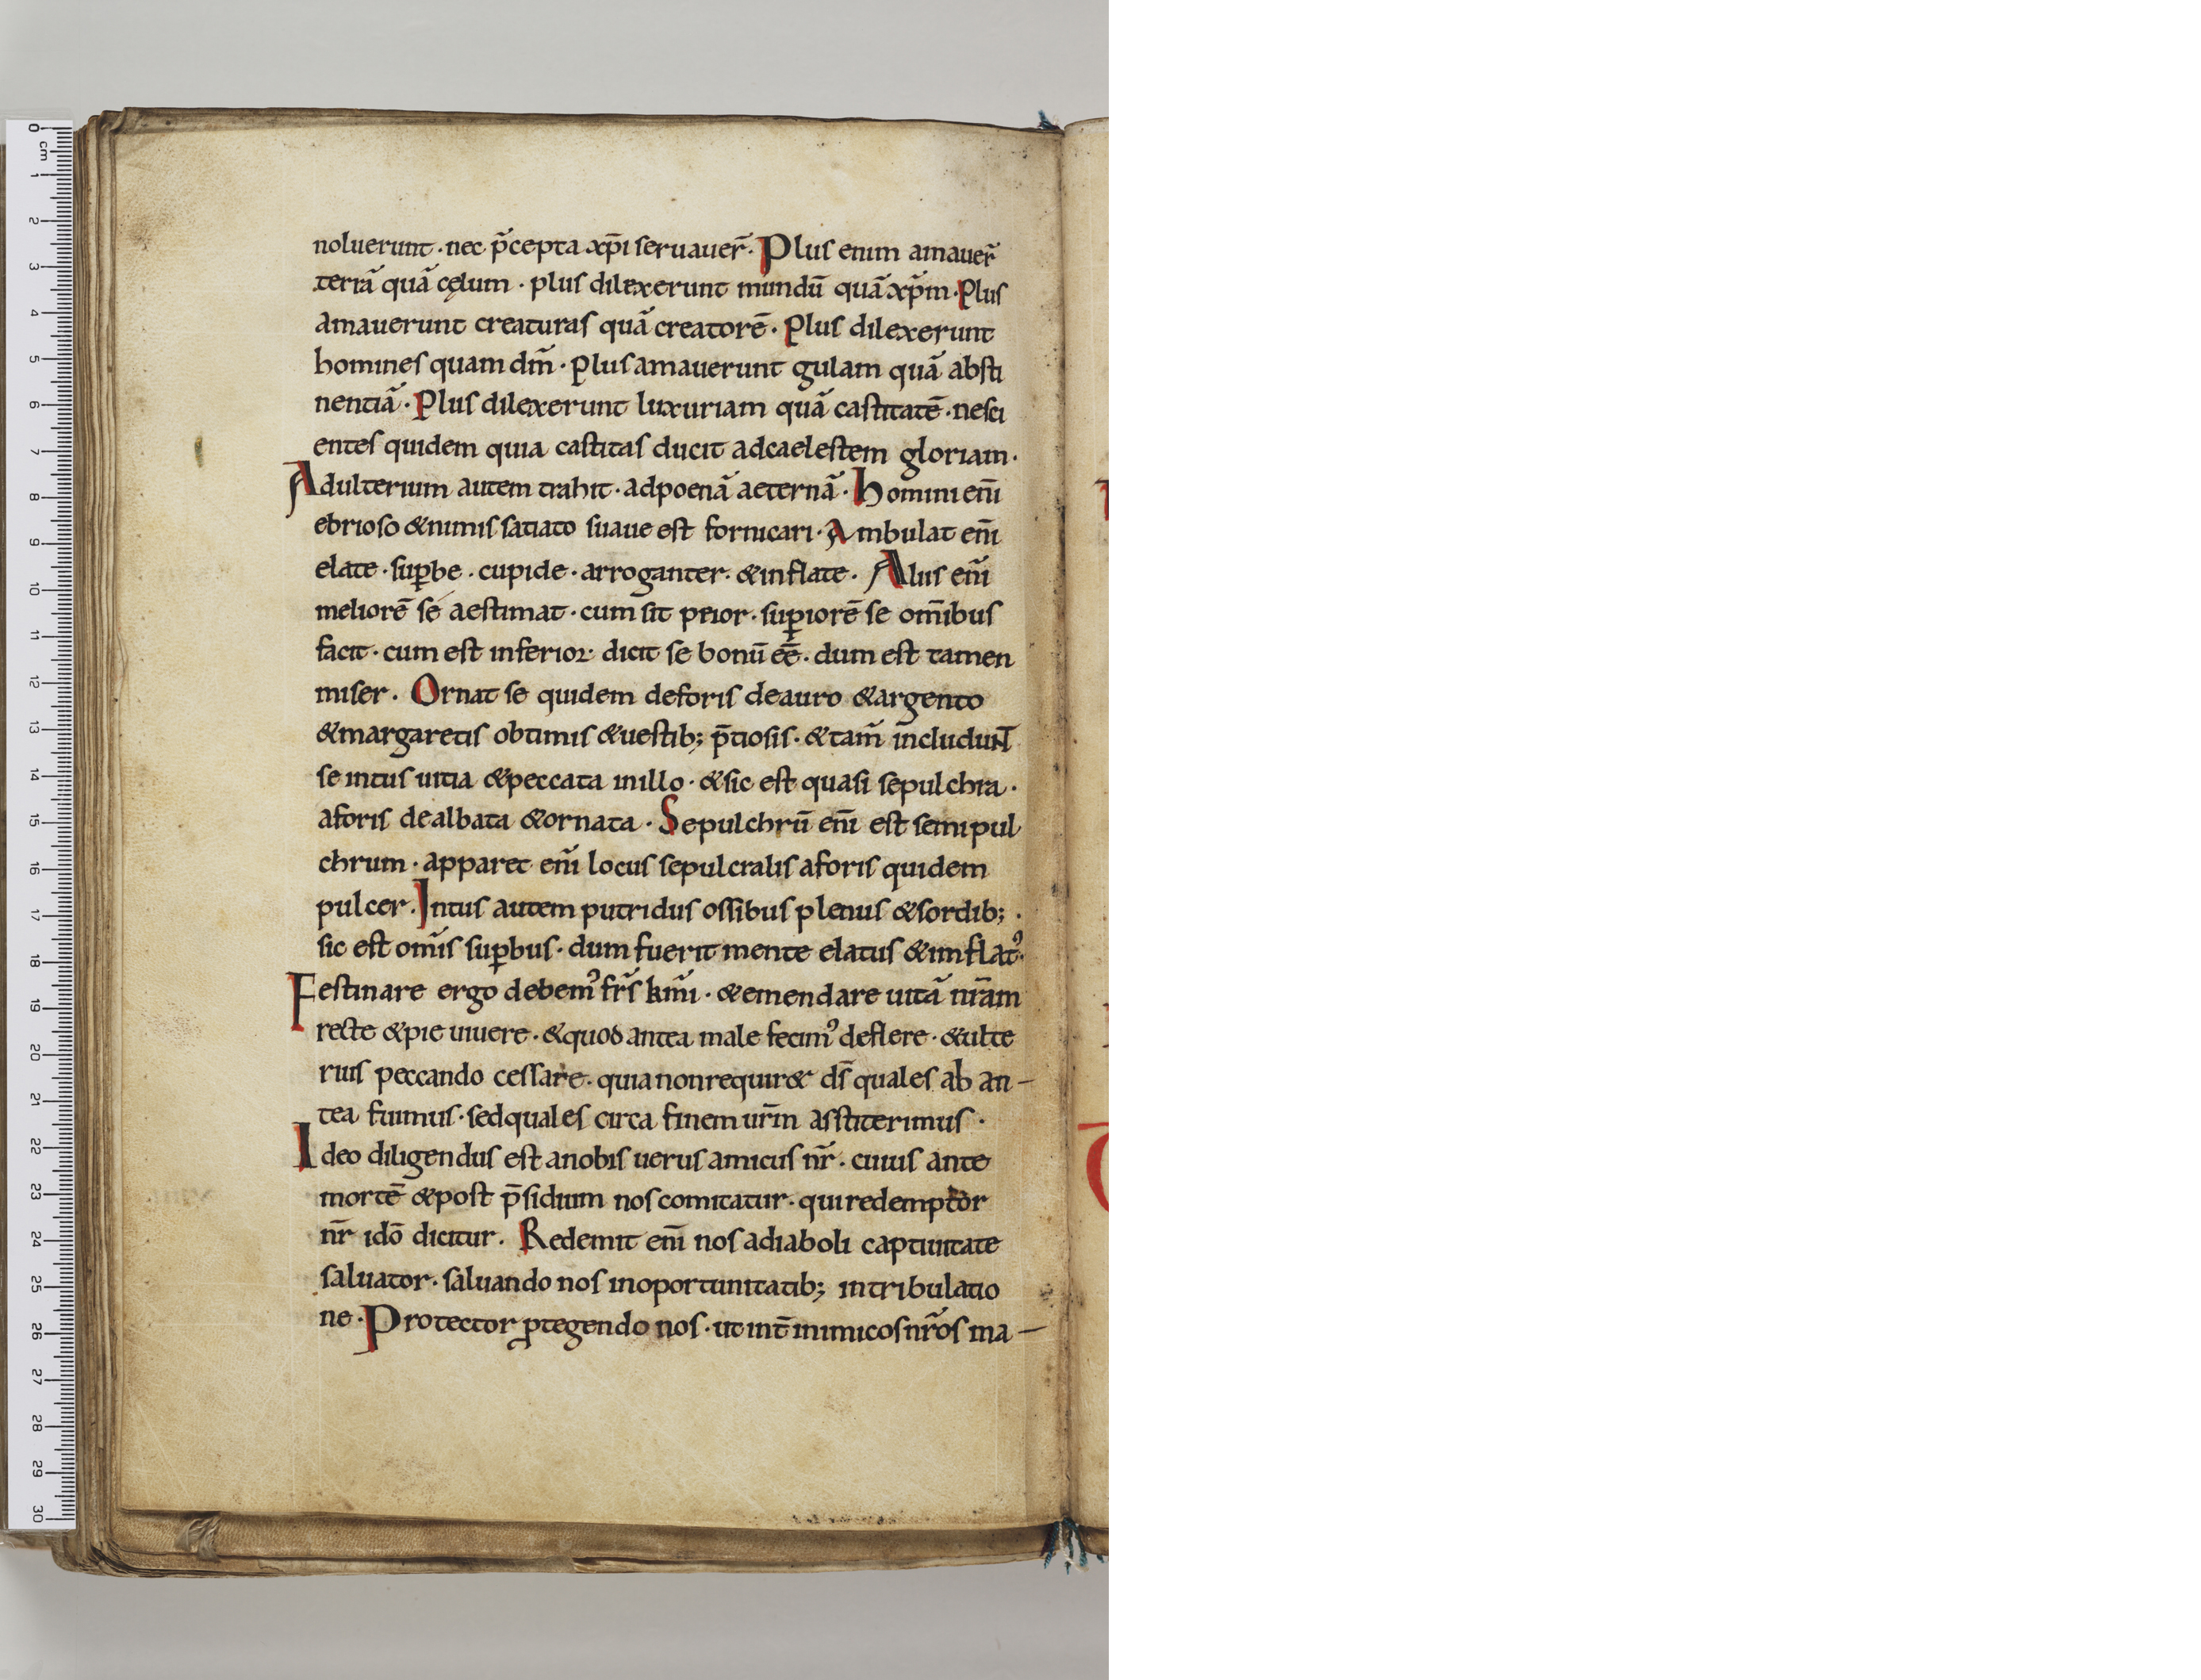 noluerunt · nec p̃cepta xp̅i seruauer̃ · Plus enim amauer̃
terrã quã cęlum · plus dilexerunt mundū quã xp̃m · Plus
amauerunt creaturas quã creatorē · Plus dilexerunt
homines quam dm̃ · Plus amauerunt gulam quã absti
nentiã · Plus dilexerunt luxuriam quã castitatē · nesci
entes quidem quia castitas ducit adcaelestem gloriam ·
Adulterium autem trahit · adpoenã aeternã · Homini eni̅
ebrioso &nimis satiato suaue est fornicari · Ambulat eni̅
elate · sup̱be · cupide · arroganter · &inflate · Alius eni̅
meliorē sé aestimat · cum sit peior · sup̱iorē se om̅ibus
facit · cum est inferior · dicit se bonū eē · dum est tamen
miser · Ornat se quidem deforis deauro &argento
&margaretis obtimis &uestib; p̅tiosis · &tam̃ includunt
se intus uitia &peccata inillo · &sic est quasi sepulchra ·
aforis dealbata &ornata · Sepulchrū eni̅ est semipul
chrum · apparet eni̅ locus sepulcralis aforis quidem
pulcer · Intus autem putridus ossibus plenus &sordib; ·
sic est om̃is sup̱bus · dum fuerit mente elatus &inflatꝰ ·
Festinare ergo debemꝰ fr̃s km̃i · &emendare uitã nr̃am
recte &pie uiuere · &quod antea male fecimꝰ deflere · &ulte
rius peccando cessare · quia nonrequir& ds̃ quales ab an-
tea fuimus · sedquales circa finem ur̅m asstiterimus ·
Ideo diligendus est anobis uerus amicus nr̃ · cuius ante
mortē &post p̅sidium nos comitatur · qui redemptor
nr̅ idō dicitur · Redemit eni̅ nos adiaboli captiuitate
saluator · saluando nos inoportunitatib; intribulatio
ne · Protector ꝓtegendo nos · ut int̅ inimicos nr̃os ma-
0 cm
1
2
3
4
5
6
7
8
9
10
11
12
13
14
15
16
17
18
19
20
21
22
23
24
25
26
27
28
29
30